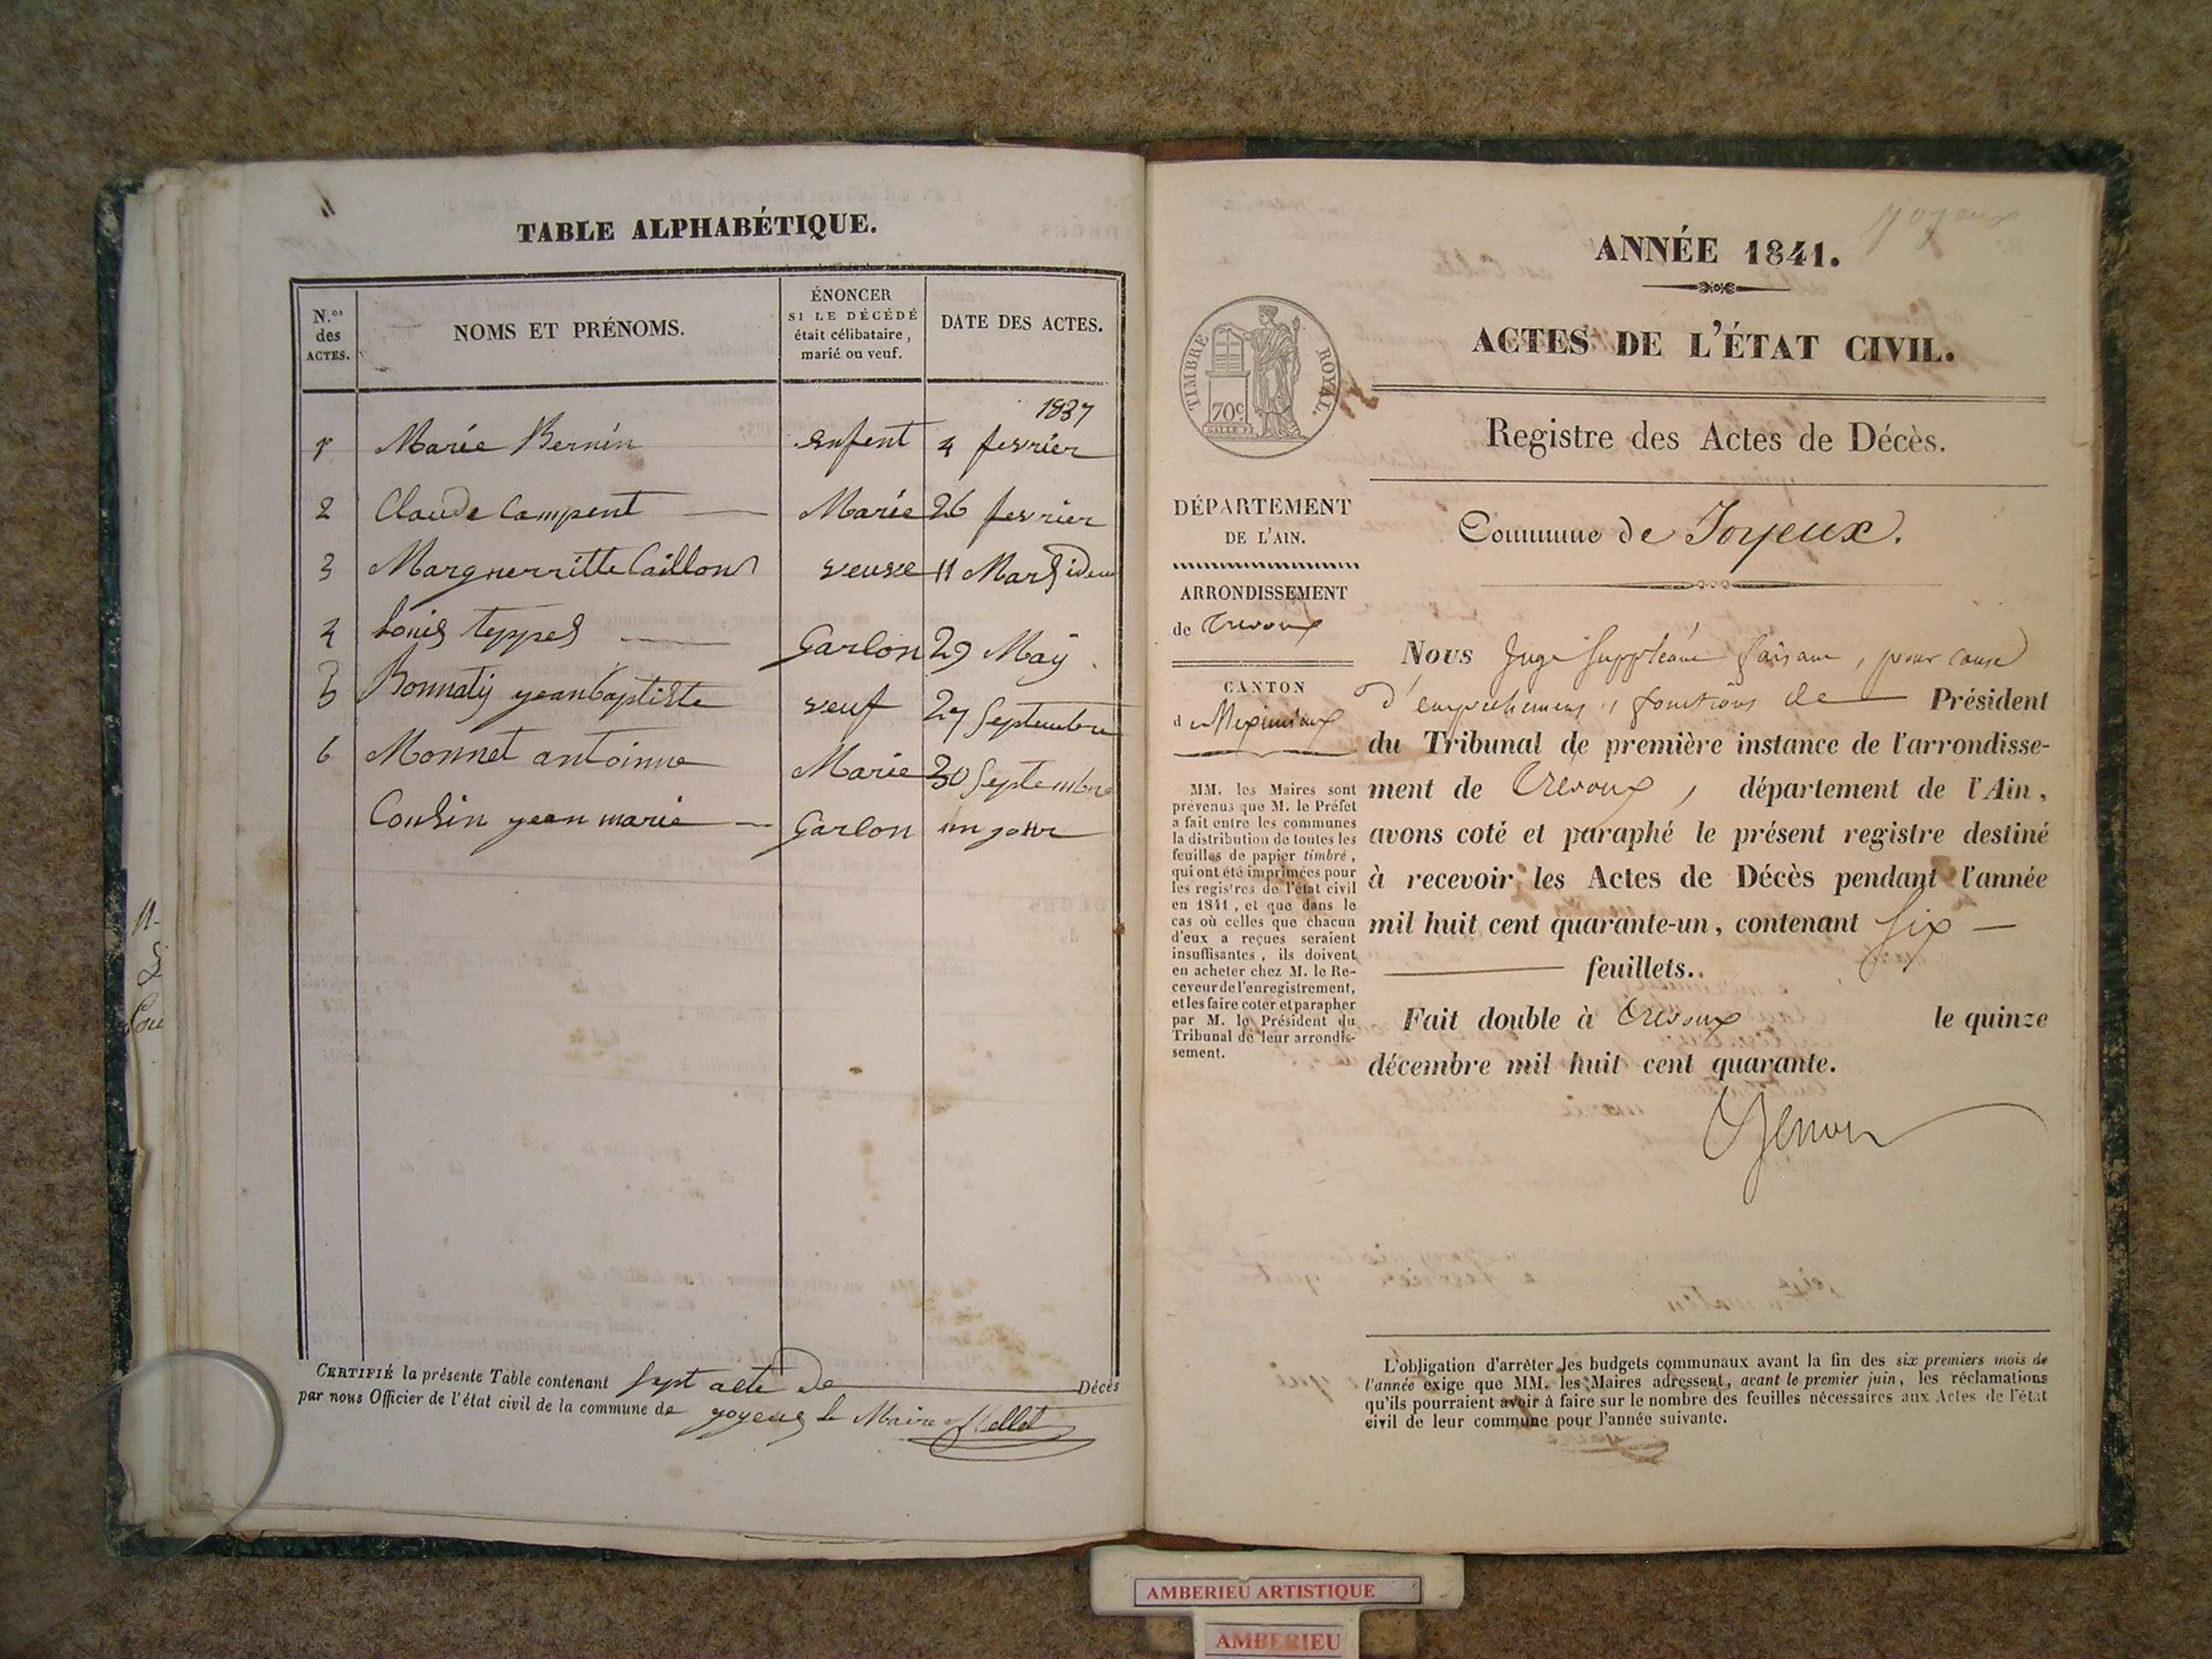 TABLE ALPHABÉTIQUE.
N.os des ACTES.
NOMS ET PRÉNOMS.
ÉNONCER
SI LE DÉCÉDÉ
était célibataire,
marié ou veuf.
DATE DES ACTES.
1837
1 Marie Bernin enfent 4 fevrier
2 Claude Campent Marie 26 fevrier
3 Marguerritte Caillon veuve 11 Mars idem
4 Louis teppes Garson 29 May
5 Bonnaty yean baptiste veuf 27 Septembre
6 Monnet antoinne Marie 30 Septembre
Cousin yean marie Garson un jour
CERTIFIÉ la présente Table contenant Sept acte De Décès
par nous Officier de l'état civil de la commune de yoyeux le Maire
Joyeux
ANNÉE 1841.
ACTES DE L'ÉTAT CIVIL.
TIMBRE ROYAL.
70c
Registre des Actes de Décès.
DÉPARTEMENT
DE L'AIN.
Commune de Joyeux.
ARRONDISSEMENT
de Trevoux
CANTON
de Meximieux
Nous Juge Suppléant faisant, pour cause
d'empechement, fonctions de Président
du Tribunal de première instance de l'arrondisse-
ment de Trevoux, département de l'Ain,
avons coté et paraphé le présent registre destiné
à recevoir les Actes de Décès pendant l'année
mil huit cent quarante-un, contenant Six
feuillets.
Fait double à Trevoux le quinze
décembre mil huit cent quarante.
MM. les Maires sont
prévenus que M. le Préfet
a fait entre les communes
la distribution de toutes les
feuilles de papier timbré,
qui ont été imprimées pour
les registres de l'état civil
en 1841, et que dans le
cas où celles que chacun
d'eux a reçues seraient
insuffisantes, ils doivent
en acheter chez M. le Re-
ceveur de l'enregistrement,
et les faire coter et parapher
par M. le Président du
Tribunal de leur arrondis-
sement.
L'obligation d'arrêter les budgets communaux avant la fin des six premiers mois de
l'année exige que MM. les Maires adressent, avant le premier juin, les réclamations
qu'ils pourraient avoir à faire sur le nombre des feuilles nécessaires aux Actes de l'état
civil de leur commune pour l'année suivante.
AMBERIEU ARTISTIQUE
AMBERIEU